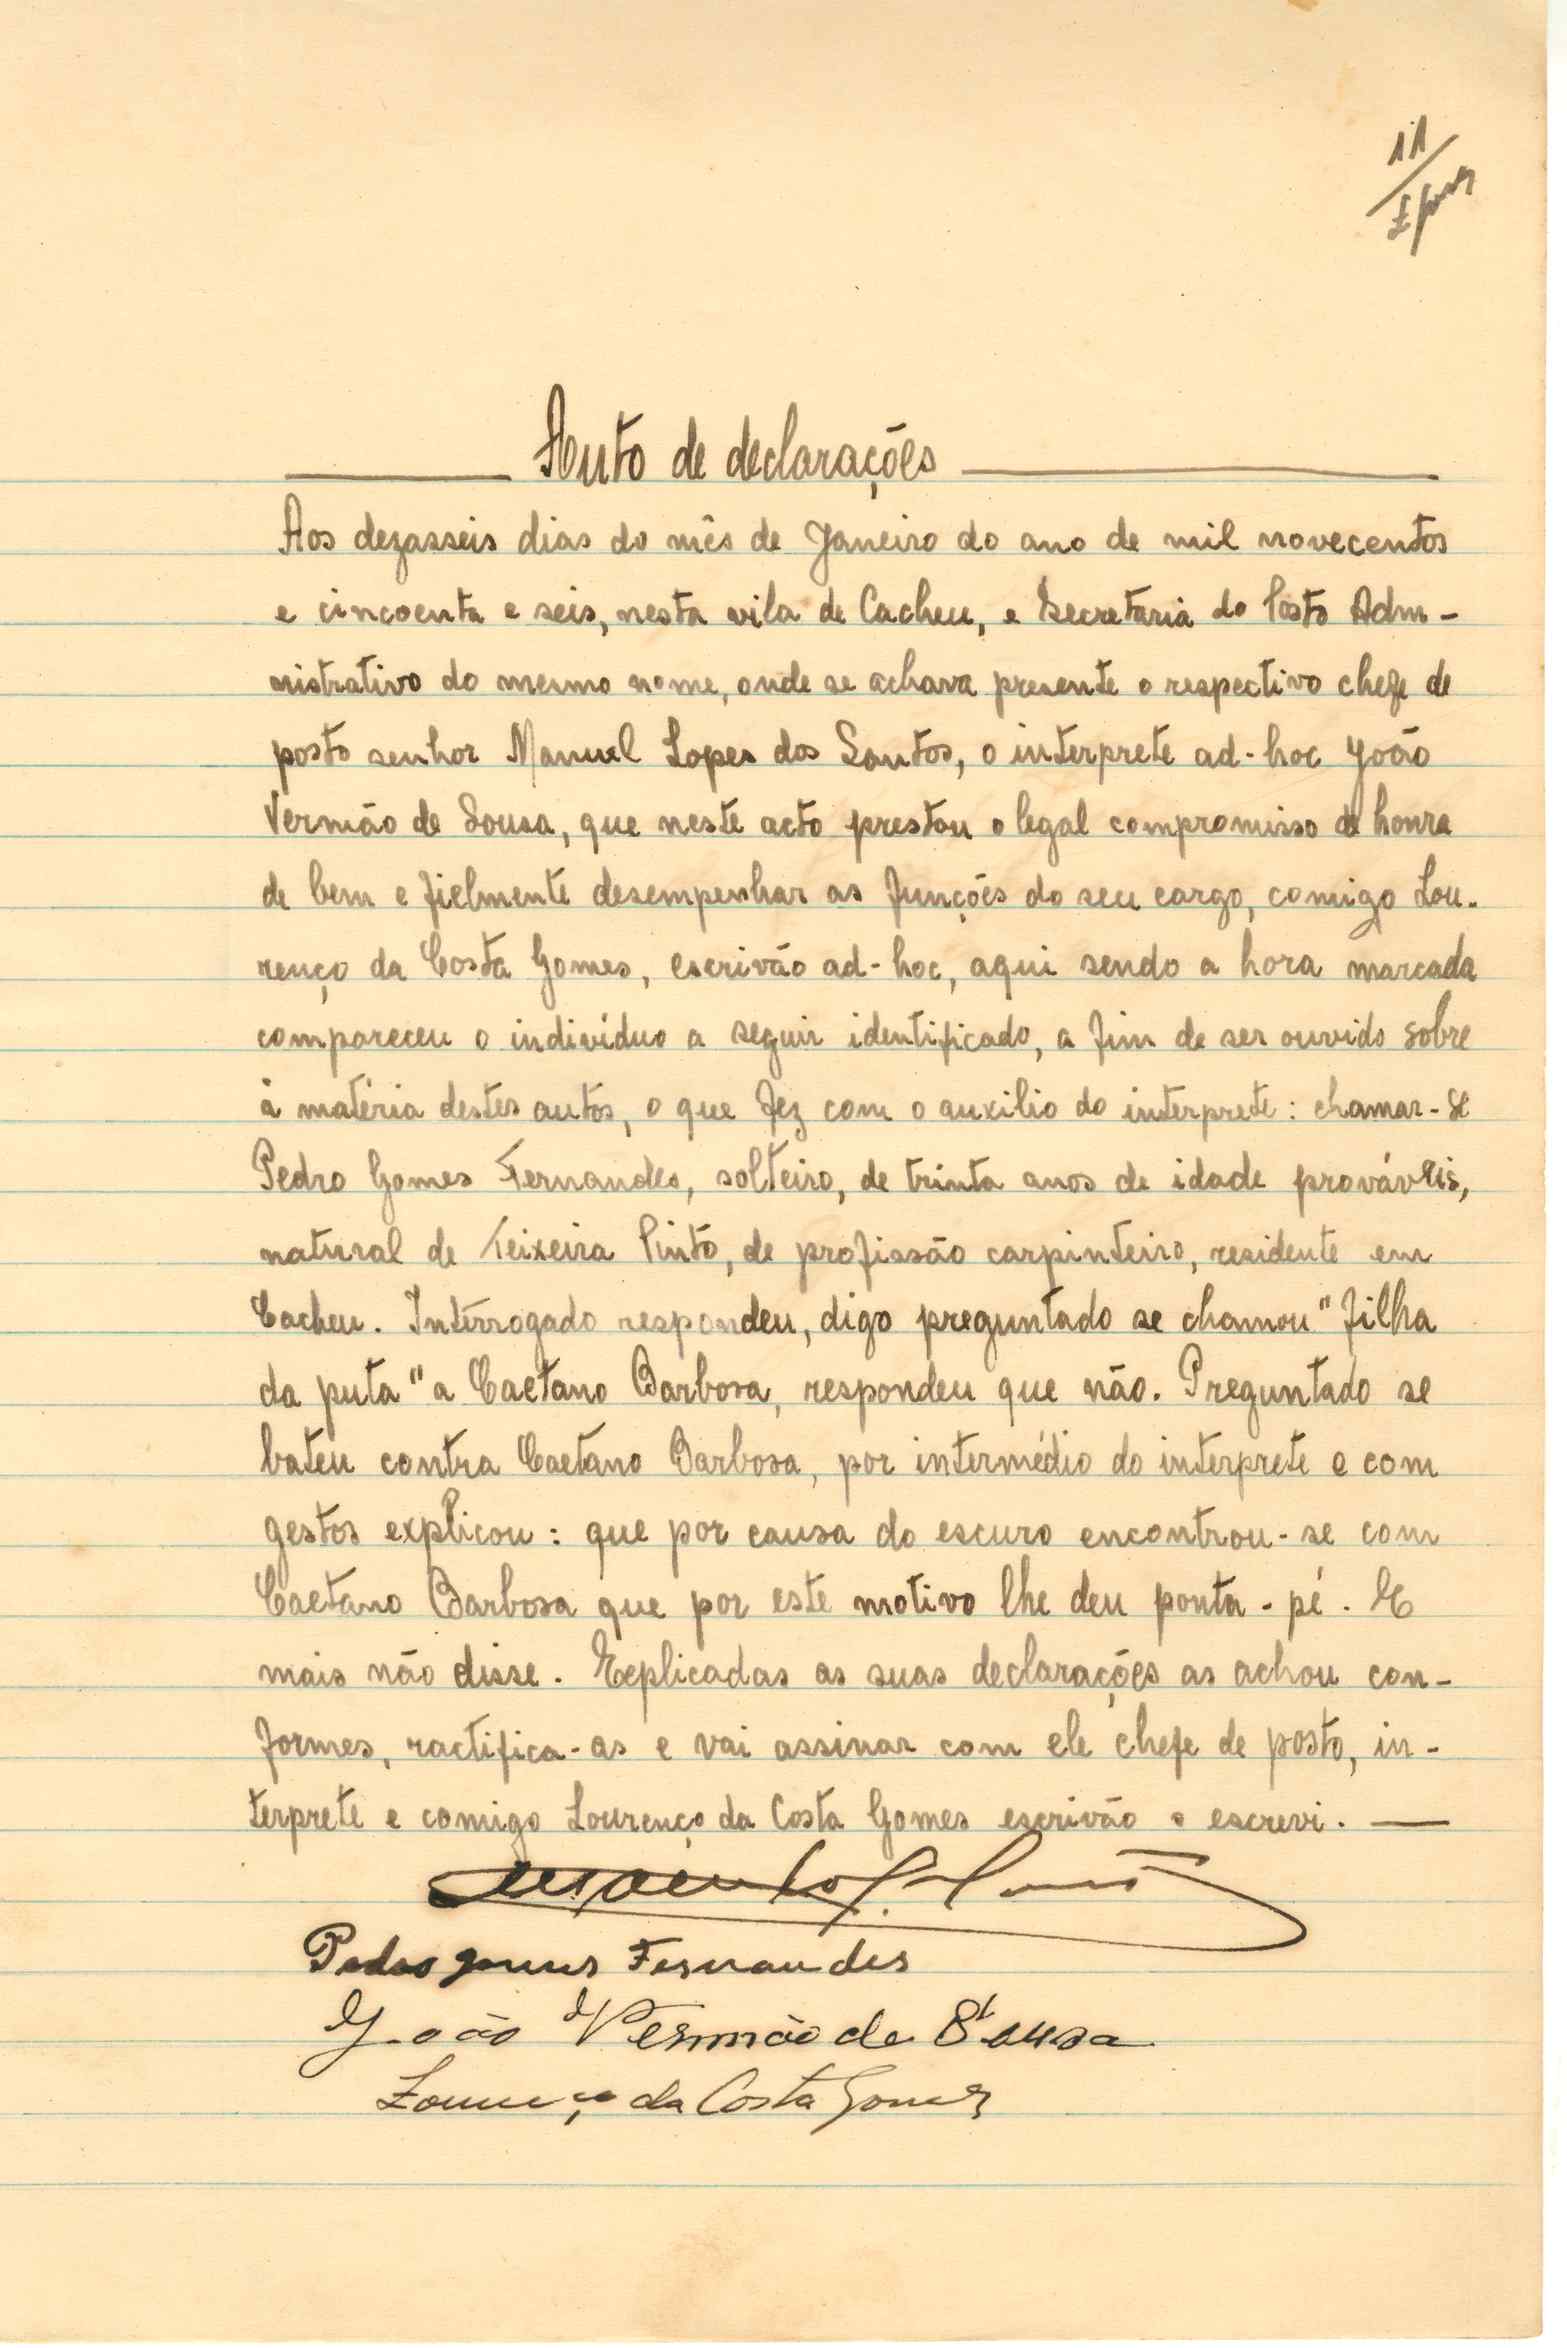 11
Auto de declarações
Aos dezasseis dias do mês de Janeiro do ano de mil novecentos
e cincoenta e seis, nesta vila de Cacheu, e Secretaria do Posto Adm-
nistrativo do mesmo nome, onde se achava presente o respectivo chefe de
posto senhor Manuel Lopes dos Santos, o interprete ad-hoc João
Vermão de Sousa, que neste acto prestou o legal compromisso de honra
de bem e fielmente desempenhar as funções do seu cargo, comigo Lou-
renço da Costa Gomes, escrivão ad-hoc, aqui sendo a hora marcada
compareceu o indivíduo a seguir identificado, a fim de ser ouvido sobre
à matéria destes autos, o que fez com o auxilio do interprete: chamar-se
Pedro Gomes Fernandes, solteiro, de trinta anos de idade prováveis,
natural de Teixeira Pinto, de profissão carpinteiro, residente em
Cacheu. Interrogado respondeu, digo preguntado se chamou "filha
da puta" a Caetano Barbosa, respondeu que não. Preguntado se
bateu contra Caetano Barbosa, por intermédio do interprete e com
gestos explicou: que por causa do escuro encontrou-se com
Caetano Barbosa que por este motivo lhe deu ponta-pé. E
mais não disse. Explicadas as suas declarações as achou con-
formes, ractifica-as e vai assinar com ele chefe de posto, in-
terprete e comigo Lourenço da Costa Gomes escrivão o escrevi.
Pedro gomes Fernandes
João Vermão de Sousa
Lourenço da Costa Gomes